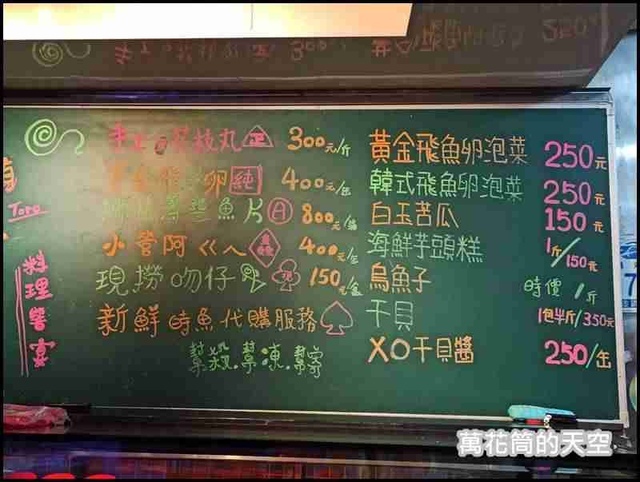 300元/斤
卵 純 400元/
魚片 A 800元/
小管阿ㄍㄟ 400元/
現撈吻仔 現 150元/
新鮮時魚代購服務
幫殺.幫凍.幫寄
黃金飛魚卵泡菜 250元
韓式飛魚卵泡菜 250元
白玉苦瓜 150元
海鮮芋頭糕 1斤/150元
烏魚子 時價/1斤
干貝 1包半斤/350元
XO干貝醬 250/缶
Toro
料理饗宴
萬花筒的天空